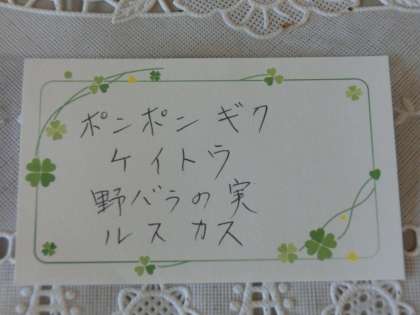 ポンポン ギク
ケイトウ
野バラの実
ルスカス